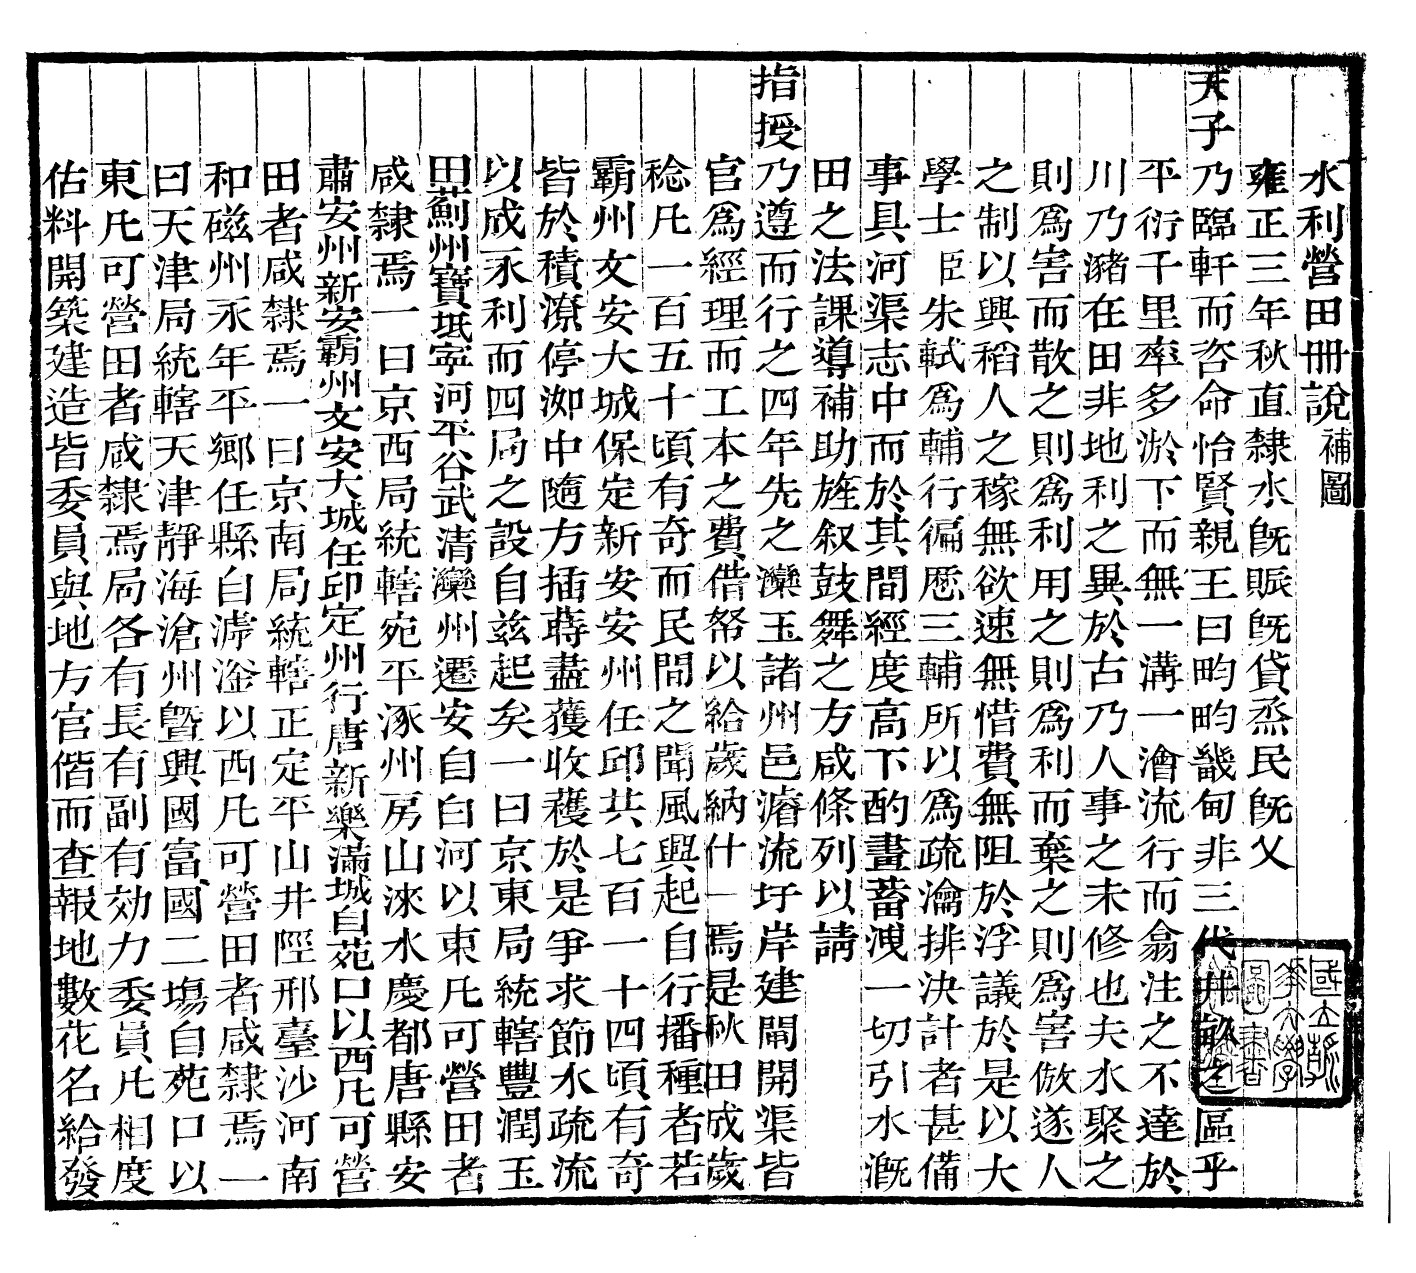 水利營田冊說補圖
雍正三年秋直隸水旣賑旣貸烝民旣乂
天子乃臨軒而咨命怡賢親王曰畇畇畿甸非三代井畝之區乎
平衍千里率多淤下而無一溝一澮流行而翕注之不達於
川乃瀦在田非地利之異於古乃人事之未修也夫水聚之
則爲害而散之則爲利用之則爲利而棄之則爲害倣遂人
之制以興稻人之稼無欲速無惜費無阻於浮議於是以大
學士臣朱軾爲輔行徧厯三輔所以爲疏瀹排決計者甚備
事具河渠志中而於其間經度高下酌畫蓄洩一切引水漑
田之法課導補助旌敘鼓舞之方咸條列以請
指授乃遵而行之四年先之灤玉諸州邑濬流圩岸建閘開渠皆
官爲經理而工本之費借帑以給歲納什一焉是秋田成歲
稔凡一百五十頃有奇而民間之聞風興起自行播種者若
霸州文安大城保定新安安州任邱共七百一十四頃有奇
皆於積潦停洳中隨方插蒔盡獲收穫於是爭求節水疏流
以成永利而四局之設自茲起矣一曰京東局統轄豐潤玉
田薊州寶坻寧河平谷武清灤州遷安自白河以東凡可營田者
咸隸焉一曰京西局統轄宛平涿州房山淶水慶都唐縣安
肅安州新安霸州文安大城任邱定州行唐新樂滿城自苑口以西凡可營
田者咸隸焉一曰京南局統轄正定平山井陘邢臺沙河南
和磁州永年平鄉任縣自滹滏以西凡可營田者咸隸焉一
曰天津局統轄天津靜海滄州曁興國富國二塲自苑口以
東凡可營田者咸隸焉局各有長有副有効力委員凡相度
估料開築建造皆委員與地方官偕而查報地數花名給發